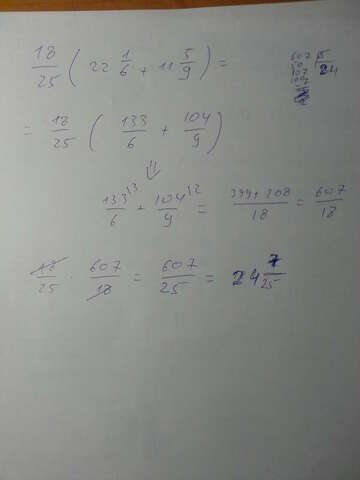 18/25 ( 22 1/6 + 11 5/9 ) =
= 18/25 ( 133/6 + 104/9 )
⇓
133/6 ^13 + 104/9 ^12 = 399+208/18 = 607/18
18/25 · 607/18 = 607/25 = 24 7/25
607
24